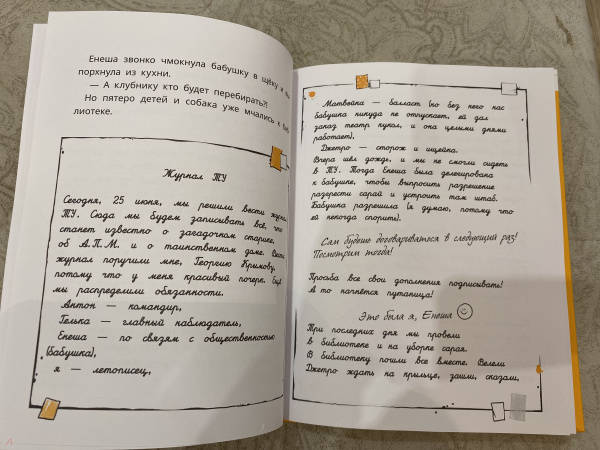 Енеша звонко чмокнула бабушку в щёку и
порхнула из кухни.
— А клубнику кто будет перебирать?!
Но пятеро детей и собака уже мчались к биб
лиотеке.
Журнал ТУ
Сегодня, 25 июня, мы решили вести журнал
ТУ. Сюда мы будем записывать всё, что
станет известно о загадочном старике,
об А.П.М. и о таинственном доме. Вести
журнал поручили мне, Георгию Крымову,
потому что у меня красивый почерк. Ещё
мы распределили обязанности.
Антон — командир,
Гелька — главный наблюдатель,
Енеша — по связям с общественностью
(бабушка),
я — летописец,
Матвейка — балласт (но без него нас
бабушка никуда не отпускает, ей дал
заказ театр кукол, и она целыми днями
работает),
Джетро — сторож и ищейка.
Вчера шёл дождь, и мы не смогли сидеть
в ТУ. Тогда Енеша была делегирована
к бабушке, чтобы выпросить разрешение
разгрести сарай и устроить там штаб.
Бабушка разрешила (я думаю, потому что
ей некогда спорить).
Сам будешь договариваться в следующий раз!
Посмотрим тогда!
Просьба все свои дополнения подписывать!
А то начнётся путаница!
Это была я, Енеша
Три последних дня мы провели
в библиотеке и на уборке сарая.
В библиотеку пошли все вместе. Велели
Джетро ждать на крыльце, зашли, сказали,